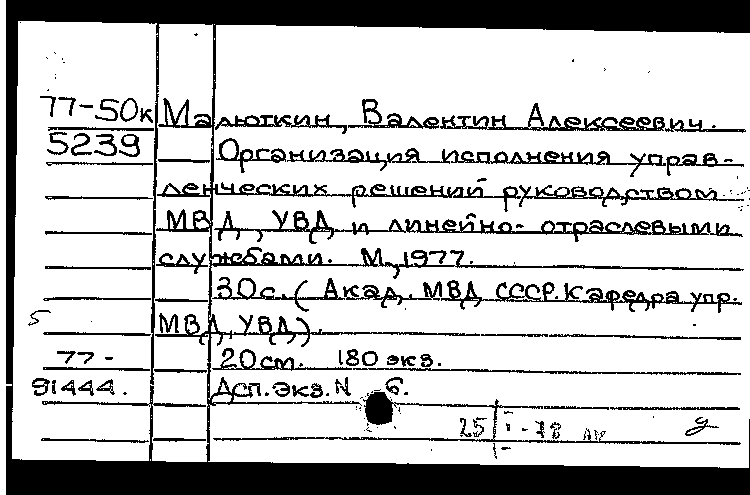 77-50к Малюткин, Валентин Алексеевич.
5239 Организация исполнения управ-
ленческих решений руководством
МВД, УВД и линейно-отраслевыми
службами. М., 1977.
30 с. (Акад. МВД СССР. Кафедра упр.
5 МВД, УВД).
77- 20 см. 180 экз.
91444. Дсп. Экз. N 6.
25/I-78